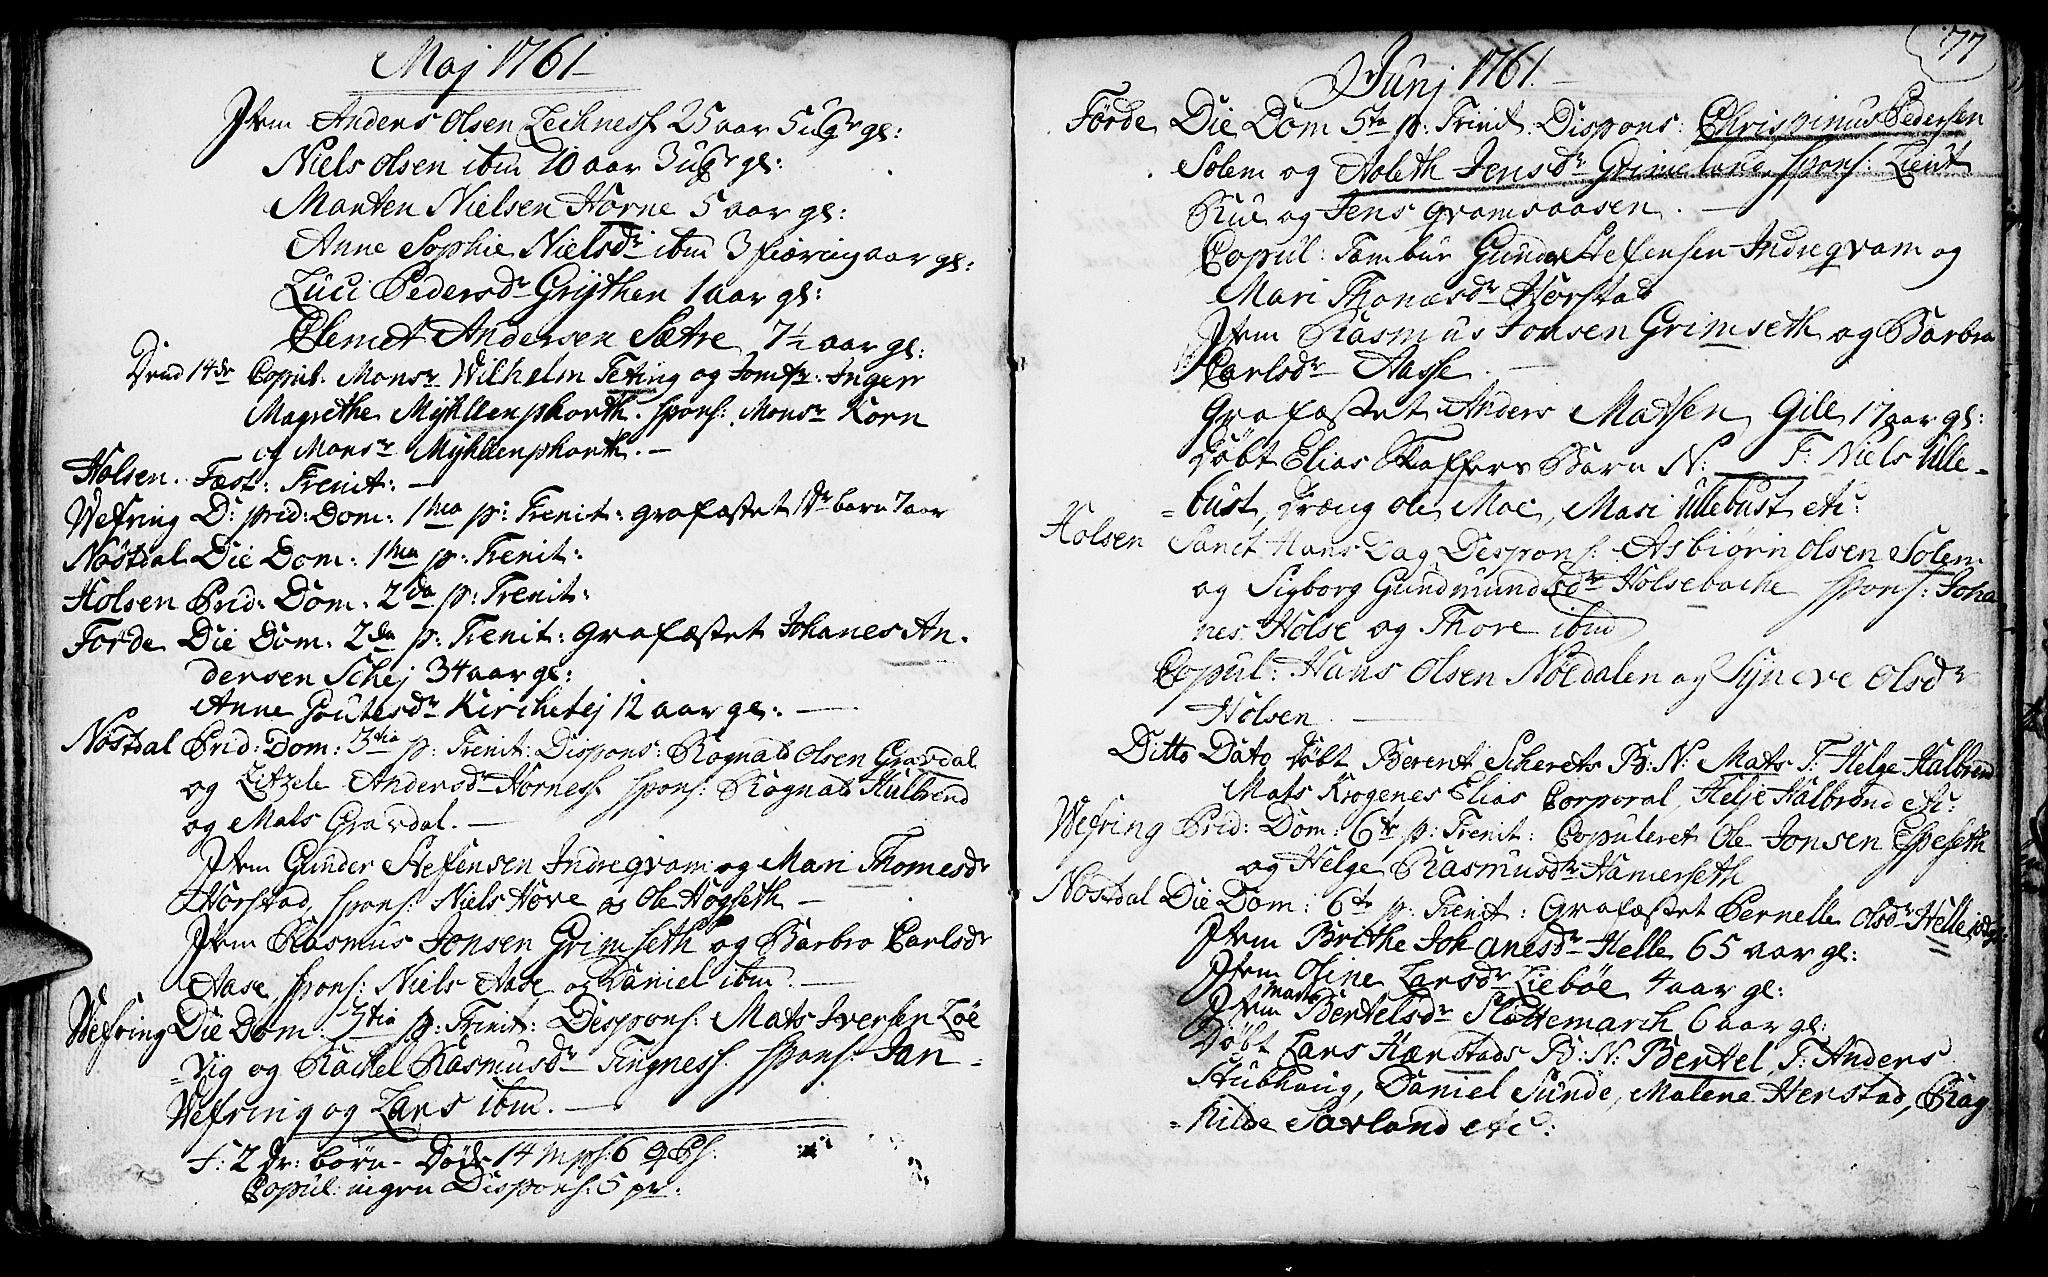 Maj 1761
Item Anders Olsen Lechness 25 aar 5 ugr gl:
Niels Olsen ibm 10 aar 3 ugr gl:
Manten Nielsen Horne 5 aar gl:
Anne Sophie Nielsdr ibm 3 fiæring aar gl:
Luci Pedersdr Grÿthen 1 aar gl:
Clemet Andersen Sætre 7½ aar gl:
Dend 14de Copul. Monsr Wilhelm Teting og Jomfr: Inger
Magrethe Mÿhllenphorth. spons: Monsr Korn
og Monsr Mÿhllenphorth. –
Holsen. Fæst: Trenit: –
Wefring D: prid: Dom: 1ma p: Trenit: grafæstet 1 Dr barn 7 aar
Nöstdal Die Dom: 1ma p: Trenit:
Holsen Prid: Dom. 2da p: Trenit:
Förde Die Dom. 2da p: Trenit: grafæstet Johanes An-
dersen Schej 34 aar gl:
Anne Poulesdr Kirchetej 12 aar gl: –
Nöstdal Prid: Dom: 3tia p: Trenit: Dispons: Rognald Olsen Gravdal
og Litzele Andersdr Horness spons: Rognald Hulbrend
og Mats Gravdal. –
Item Gunder Stefensen Indreqvam og Mari Thomesdr
Horstad, spons: Niels Hove og Ole Högseth –
Item Rasmus Jonsen Grimseth og Barbro Carlsdr
Aase, spons: Niels Aase og Daniel ibm. –
Wefring Die Dom: 3tia p: Trenit: Despons: Mats Iversen Löe
=vig og Rachel Rasmusdr Tingness. spons: Jan =
Wefring og Lars ibm. –
S: 2 dr: börn – Döde 14 Mpsf: 6 q Ps:
Copul: ingen Dispons: 5 pr:
177
Junj 1761.
Förde Die Dom 5ta p: Trinit. Dispons: Chrispinus Pedersen
Solem og Aoleth Jensdr Grimeland spons: Lieut
Rue og Jens Qvamsaasen. –
Copul: Tambur Gunder Stefensen Indreqvam og
Mari Thomæsdr Horstad
Item Rasmus Jonsen Grimseth og Barbra
Carlsdr Aasse. –
Grafæstet Anders Matsen Gile 17 aar gl:
Döbt Elias Staffers Barn N: T: Niels Ulle-
=bust, dræng Ole Moe, Mari Ullebust etc:
Holsen Sanct Hans Dag Despons: Asbiörn Olsen Solem
og Sigborg Gundmundsdr Holsebache spons: Joha
nes Holse og Thore ibm
Copul: Hans Olsen Nöedalen og Syneve Olsdr
Holsen. –
Ditto Dato döbt Berent Scherets B: N: Mats T: Helge Halbrend
Mats Krogenes Elias Corporal, Helje Halbrend etc:
Wefring Prid: Dom: 6te p: Trenit: Copuleret Ole Jonsen Espeseth
og Helge Rasmusdr Hamerseth
Nöstdal Die Dom: 6te p: Trenit: Grafæstet Pernelle Olsdr Helle
Item Brithe Johanesdr Helle 65 aar gl:
Item Oline Larsdr Lieböe 4 aar gl:
Item Marte Bertelsdr Slottemarch 6 aar gl:
Döbt Lars Harstads B: N: Bertel, T: Anders
Stubhaug, Daniel Sunde, Malene Herstad, Rag
=nilde Savland etc: